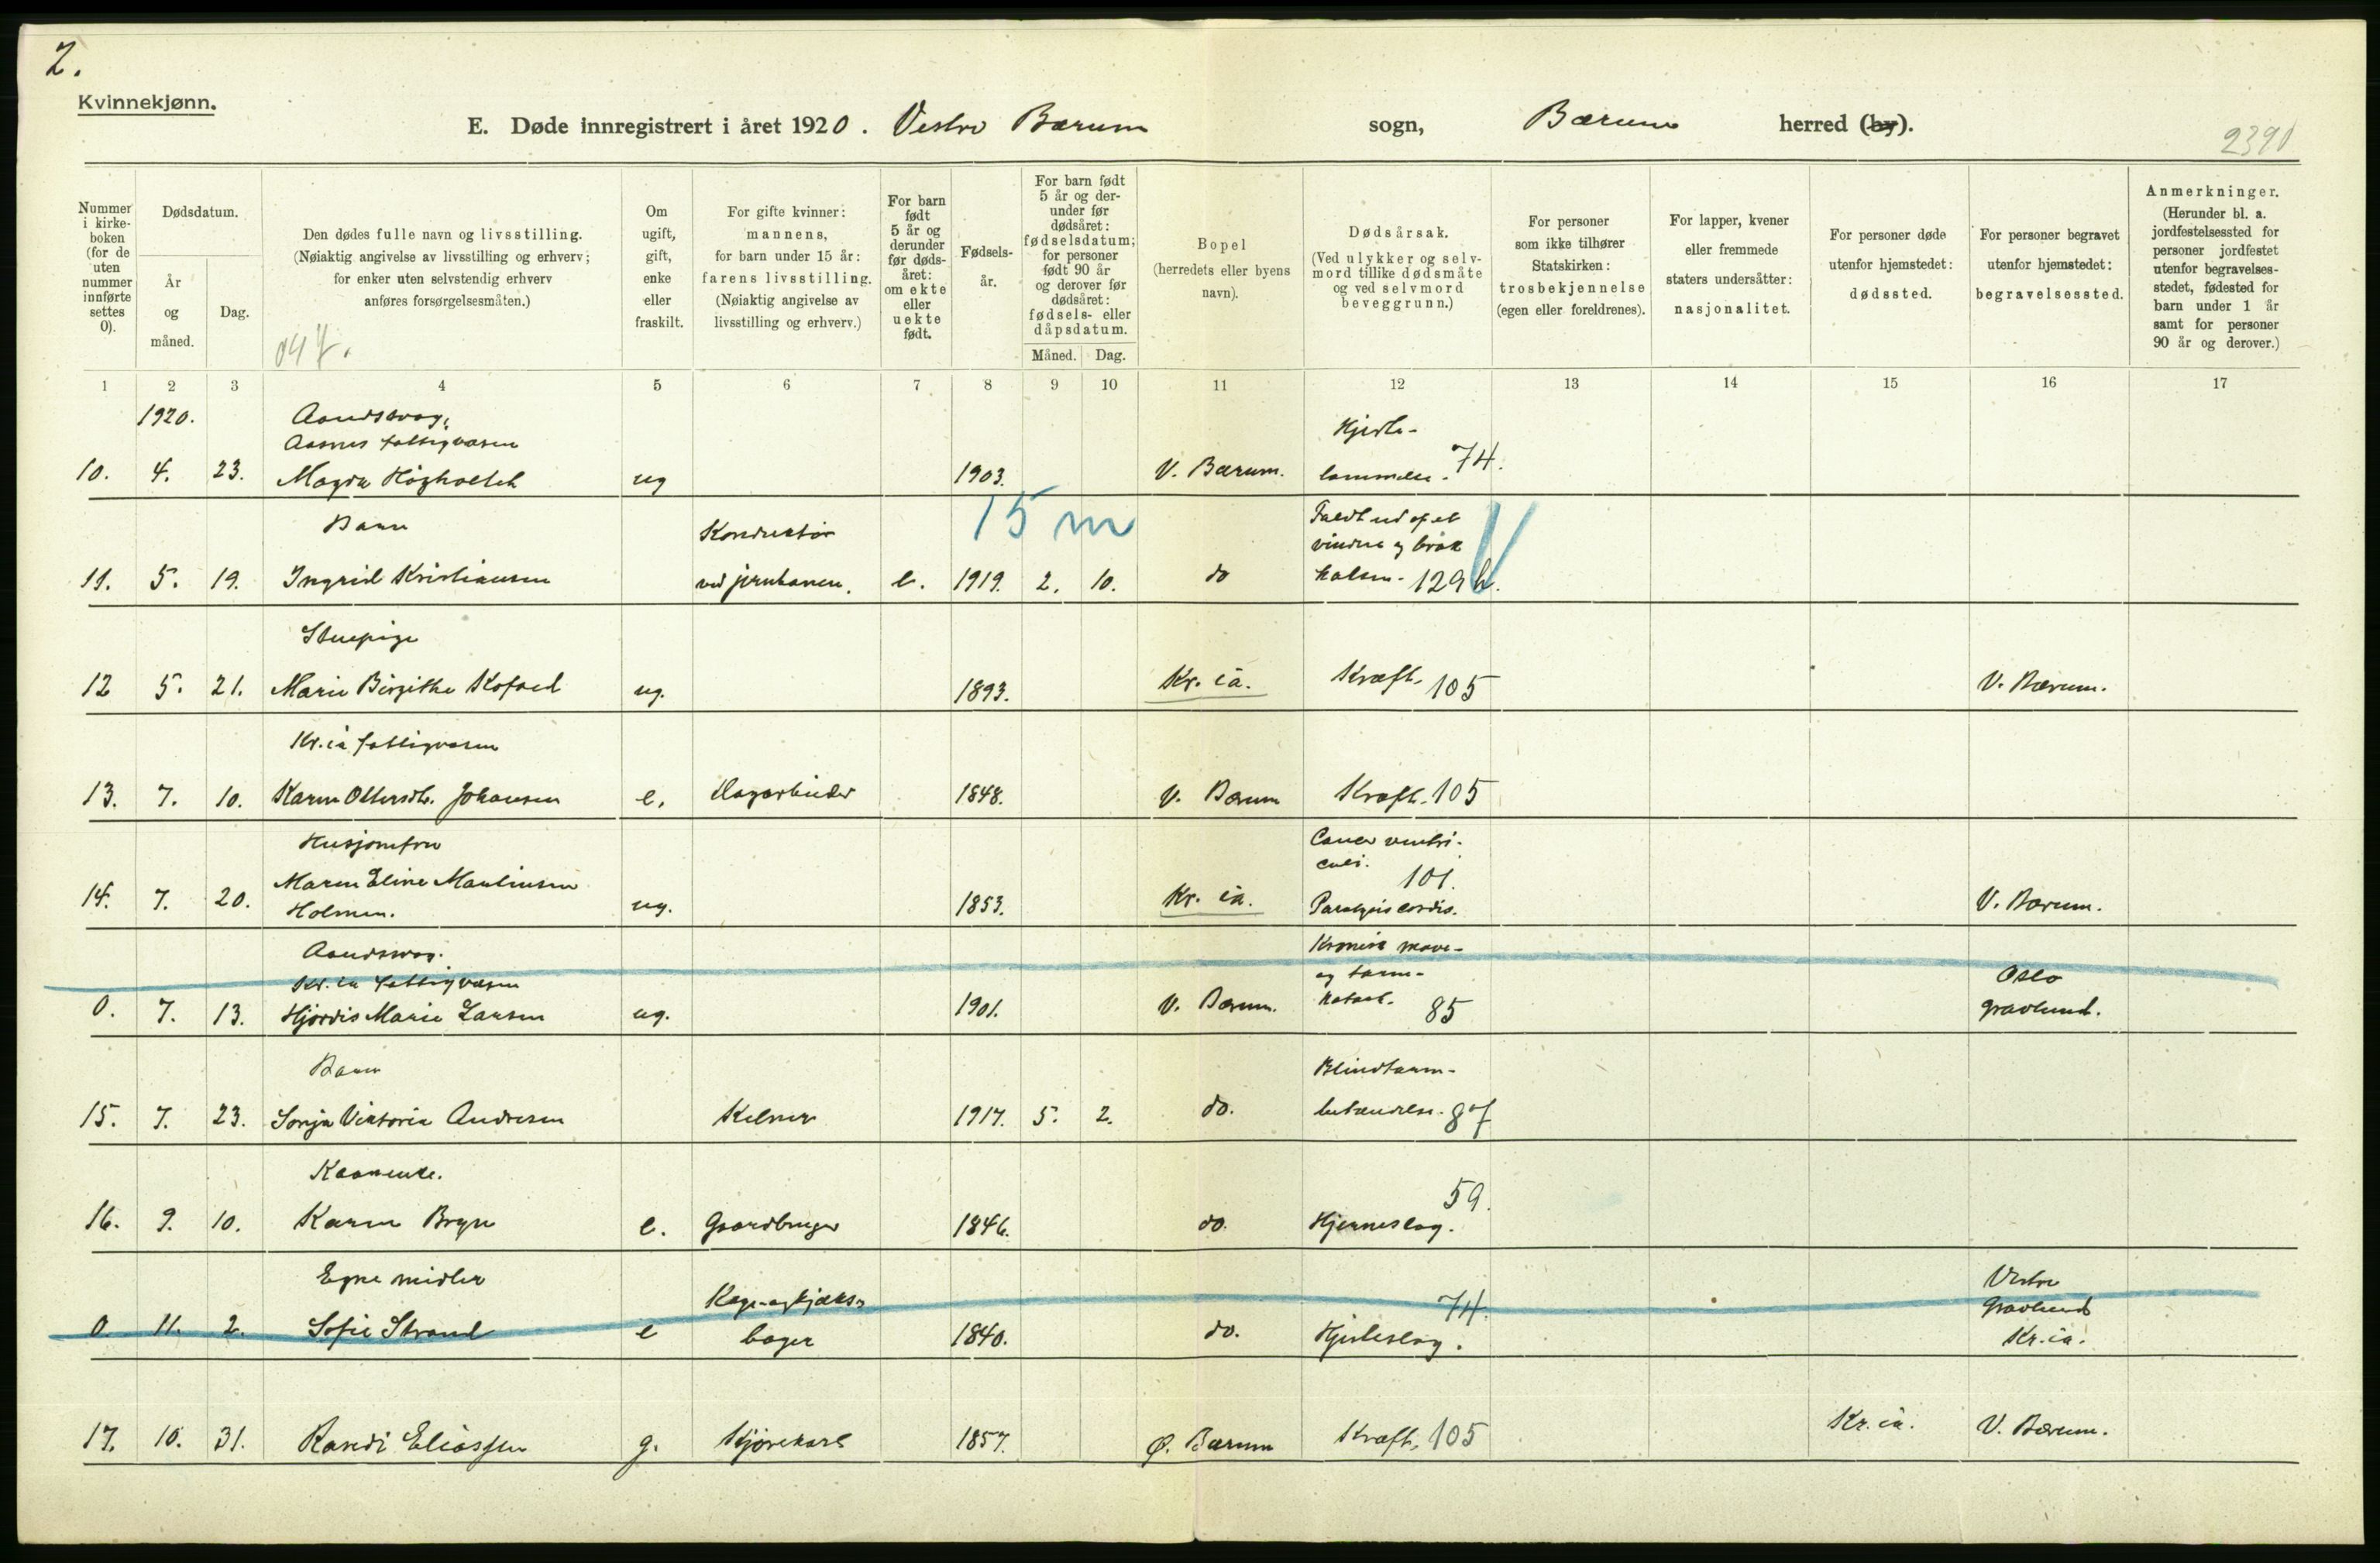 2.
Kvinnekjønn.
E. Døde innregistrert i året 1920. Vestre Bærum sogn, Bærum herred (by).
2390
Nummer i kirke-boken (for de uten nummer innførte settes 0).
Dødsdatum.
År og måned.
Dag.
Den dødes fulle navn og livsstilling.
(Nøiaktig angivelse av livsstilling og erhverv;
for enker uten selvstendig erhverv
anføres forsørgelsesmåten.)
Om ugift, gift, enke eller fraskilt.
For gifte kvinner:
mannens,
for barn under 15 år:
farens livsstilling.
(Nøiaktig angivelse av
livsstilling og erhverv.)
For barn født 5 år og derunder før døds-året: om ekte eller uekte født.
Fødsels-år.
For barn født 5 år og der-under før dødsåret: fødselsdatum; for personer født 90 år og derover før dødsåret: fødsels- eller dåpsdatum.
Måned.
Dag.
Bopel
(herredets eller byens
navn).
Dødsårsak.
(Ved ulykker og selv-
mord tillike dødsmåte
og ved selvmord
beveggrunn.)
For personer
som ikke tilhører
Statskirken:
trosbekjennelse
(egen eller foreldrenes).
For lapper, kvener
eller fremmede
staters undersåtter:
nasjonalitet.
For personer døde
utenfor hjemstedet:
dødssted.
For personer begravet
utenfor hjemstedet:
begravelsessted.
Anmerkninger.
(Herunder bl. a.
jordfestelsessted for
personer jordfestet
utenfor begravelses-
stedet, fødested for
barn under 1 år
samt for personer
90 år og derover.)
1 2 3 4 5 6 7 8 9 10 11 12 13 14 15 16 17
1920. Aandssvag. Hjerte-
Aasnes fattigvæsen
10. 4. 23. Magda ug 1903. V. Bærum. lammelse. 74.
15 m
Barn Konduktør Faldt ud af et
vindu og brak
11. 5. 19. Ingrid Kristiansen ved jernbanen. e. 1919. 2. 10. do halsen. 129b.
Stuepige
12 5. 21. Marie Birgithe Kofoed ug. 1893. Kr.ia. Kræft. 105 V. Bærum.
Kr.ia fattigvæsen
13. 7. 10. Karen Ottersdtr. Johansen e. Dagarbeider 1848. V. Bærum Kræft. 105
Husjomfru Cancer ventri-
culi. 101.
14. 7. 20. Maren Eline Martinsen
Holmen. ug. 1853. Kr.ia. Paralysis cordis. V. Bærum.
Aandssvag. Kronisk mave-
Kr.ia fattigvæsen og tarm- Oslo
0. 7. 13. Hjørdis Marie Larsen ug. 1901. V. Bærum. katarh. 85 gravlund.
Barn Blindtarm-
15. 7. 23. Sonja Viktoria Andresen Kelner 1917. 5. 2. do. betændelse. 87
Kaarenke. 59.
16. 9. 10. Karen Bryn e. Gaardbruger 1846. do. Hjerneslag.
Egne midler Kage- og kjæks- Vestre
0. 11. 2. Sofie Strand e bager 1840. do. Hjerteslag. 74. Gravlund
Kr.ia.
17. 10. 31. Randi Eliassen g. Kjørekarl 1857. Ø. Bærum Kræft. 105 Kr.ia. V. Bærum.